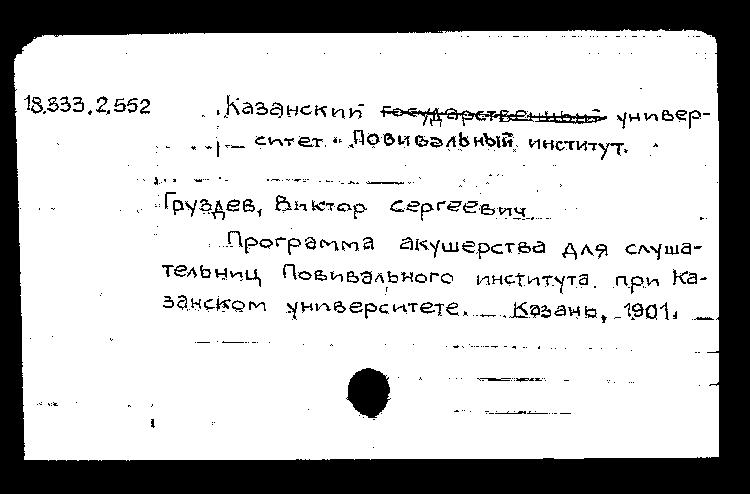 18.333.2.552 Казанский государственный универ-
ситет. Повивальный институт.
Груздев, Виктор Сергеевич
Программа акушерства для слуша-
тельниц Повивального института при Ка-
занском университете. Казань, 1901.